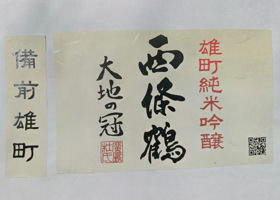 雄町純米吟醸
西條鶴
大地の冠
備前雄町